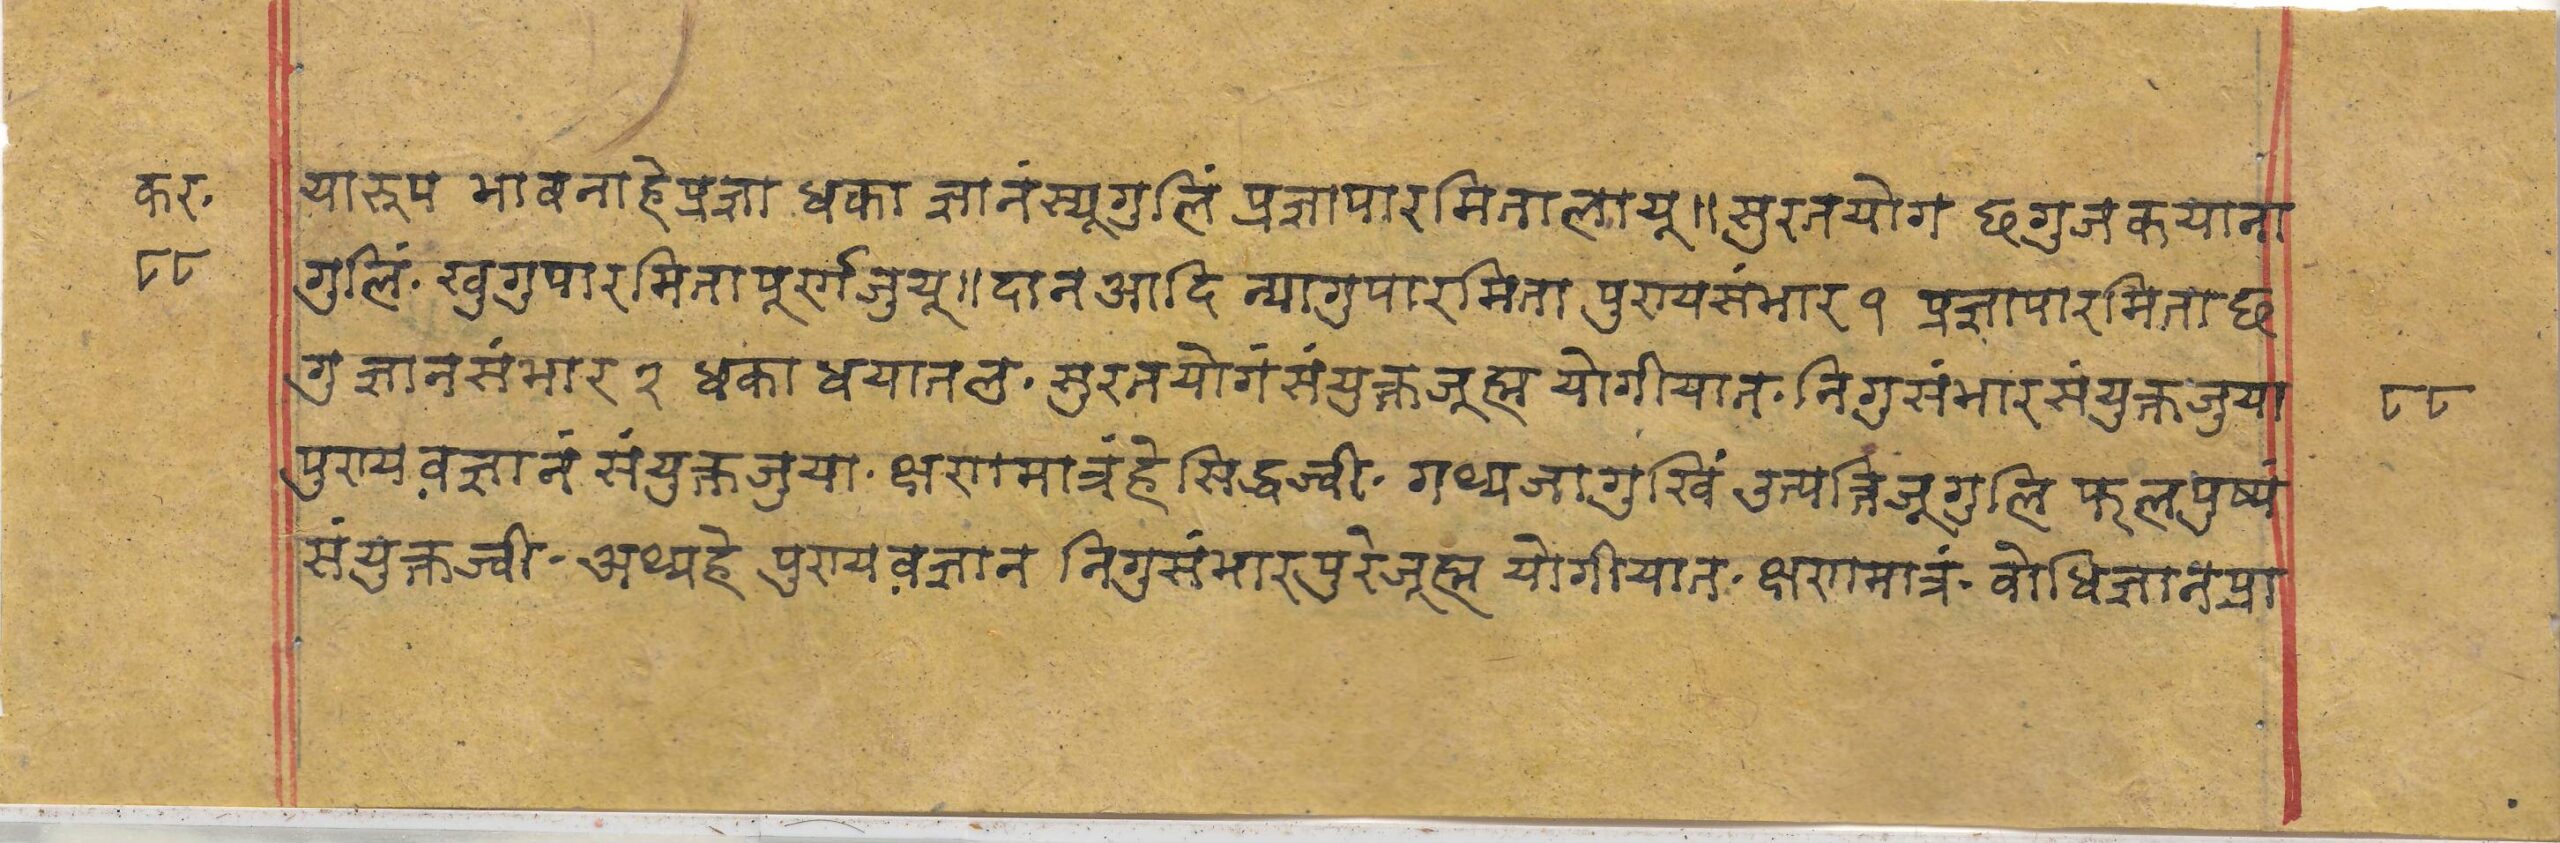 कर. यारूप भावनाहेप्रज्ञा धका ज्ञानंस्यूगुलिं प्रज्ञापारमितालायू॥सुरतयोग छगुजकयाना
८८ गुलिं. खुगुपारमितापूर्णजुयू॥दानआदि न्यागुपारमिता पुण्यसंभार १ प्रज्ञापारमिताछ
गु ज्ञानसंभार २ धका धयातल. सुरतयोगंसंयुक्तजूह्म योगीयात. निगुसंभारसंयुक्तजुया ८८
पुण्य व ज्ञानं संयुक्तजुया. क्षणमात्रंहे सिद्धज्वी. गथ्यजागुखिं उत्पत्तिजूगुलि फलपुष्पं
संयुक्तज्वी. अथ्यहे पुण्य व ज्ञान निगुसंभारपुरेजूह्म योगीयात. क्षणमात्रं. वोधिज्ञानप्रा